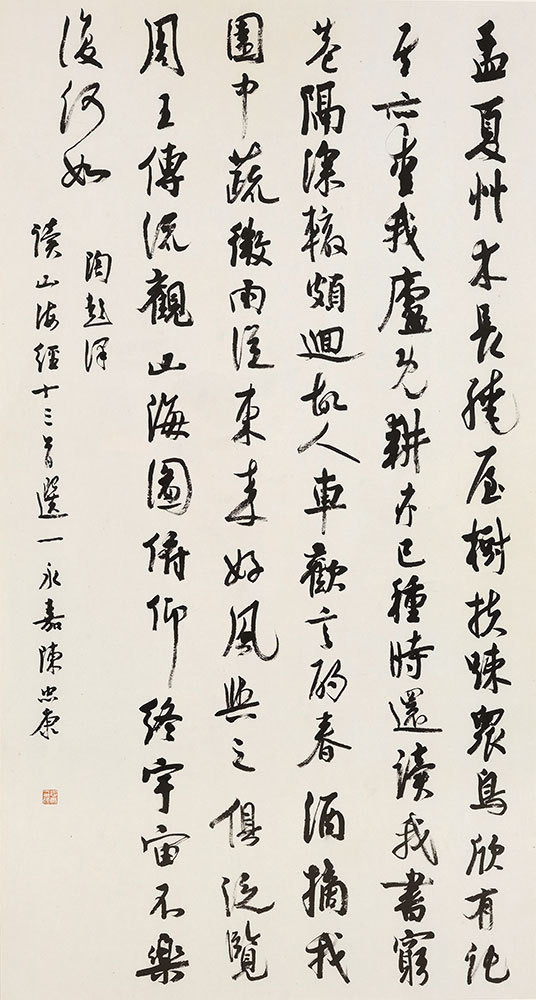 孟夏艸木長繞屋樹扶踈眾鳥欣有託
吾亦愛我廬既耕亦已種時還讀我書窮
巷隔深轍頗迴故人車歡言酌春酒摘我
園中蔬微雨從東來好風與之俱泛覽
周王傳流觀山海圖俯仰終宇宙不樂
復何如
陶彭澤
讀山海經十三首選一永嘉陳忠康